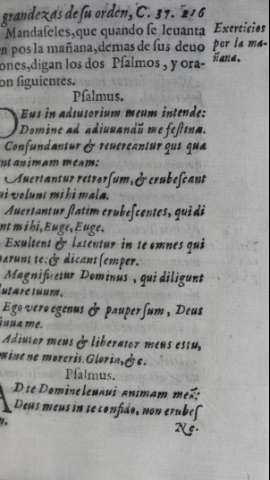 grandezas de su orden, C. 37. 216
Mandaseles, que quando se leuanta
n pos la mañana, demas de sus deuo
ones, digan los dos Psalmos, y ora-
on siguientes.
Exercicios
por la ma-
ñana.
Psalmus.
Deus in adiutorium meum intende:
Domine ad adiuuandũ me festina.
Confundantur & reuereantur qui qua
nt animam meam:
Auertantur retrorsum, & erubescant
ui volunt mihi mala.
Auertantur statim erubescentes, qui di
nt mihi, Euge, Euge.
Exultent & latentur in te omnes qui
arunt te: & dicant semper.
Magnificetur Dominus, qui diligunt
lutare tuum.
Ego vero egenus & pauper sum, Deus
iuua me.
Adiutor meus & liberator meus estu,
mine ne moreris. Gloria, &c.
Psalmus.
AD te Domine leuaui animam meã:
Deus meus in te confido, non erubes
n. Ne.